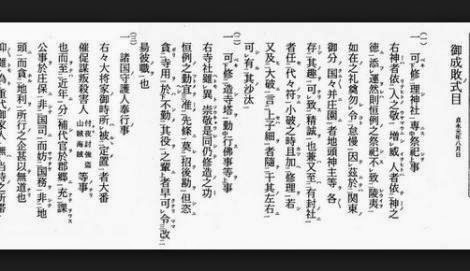 御成敗式目 貞永元年八月日
(一) 一 可修理神社専祭祀事
右神者依人之敬増威、人者依神之
徳添運、然則恒例之祭祀不致陵夷
如在之礼奠勿令怠慢、因玆於関東
御分国々并庄園者地頭神主等各
存其趣、可致精誠也、兼又至有封社
者任代々符、小破之時且加修理、若
及大破、言上子細者、随于其左右
可有其沙汰
(二) 一 可修造寺塔勤行仏事等事
右寺社雖異崇敬是同、仍修造之功
恒例之勤宜准先条、莫招後勘、但恣
貪寺用、於不勤其役之輩者早可令改
易彼職也
(三) 一 諸国守護人奉行事
右々大将家御時所被定置者大番
催促謀叛殺害人付夜討強盗山賊海賊等事
也、而至近年分補代官於郡郷、充課
公事於庄保、非国司而妨国務、非地
頭而貪地利、所行之企甚以無道也
抑雖為重代御家人無当時之所帯